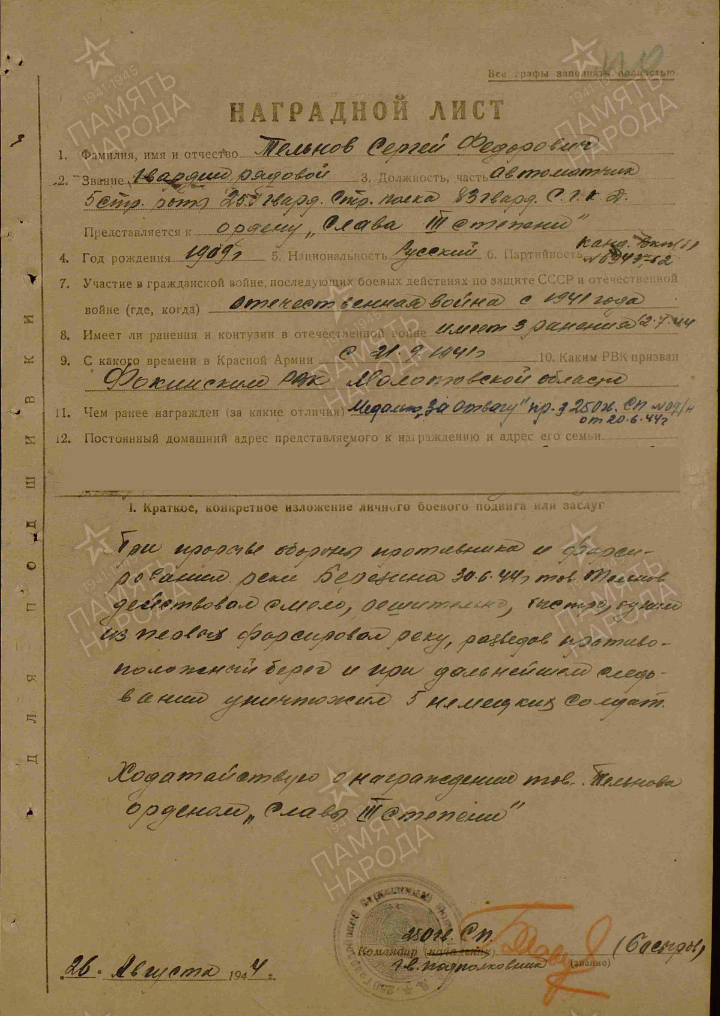 Все графы заполнять полностью
НАГРАДНОЙ ЛИСТ
1. Фамилия, имя и отчество Тельнов Сергей Федорович
2. Звание гвардии рядовой 3. Должность, часть автоматчик
5 стр. роты 250 гвард. стр. полка 83 гвард. С.
Представляется к ордену „Слава III степени"
4. Год рождения 1909 г 5. Национальность Русский 6. Партийность канд. ВКП(б)
7. Участие в гражданской войне, последующих боевых действиях по защите СССР и отечественной
войне (где, когда) отечественная война с 1941 года
8. Имеет ли ранения и контузии в отечественной войне имеет 3 ранения 12.7.44
9. С какого времени в Красной Армии с 21.9.1941г 10. Каким РВК призван
Фокинским РВК Молотовской области
11. Чем ранее награжден (за какие отличия) Медалью „За Отвагу" пр. 250 гв. СП № 09/н
от 20.6.44 г
12. Постоянный домашний адрес представляемого к награждению и адрес его семьи
I. Краткое, конкретное изложение личного боевого подвига или заслуг
При прорыве обороны противника и форси-
рования реки Березина 30.6.44г тов. Тельнов
действовал смело, решительно, быстро, одним
из первых форсировал реку, разведов противо-
положный берег и при дальнейшем следо-
вании уничтожил 5 немецких солдат.
Ходатайствую о награждении тов. Тельнова
орденом „Славы III степени"
250 гв. СП
Командир (начальник)
гв. подполковник (звание)
26. Августа 1944 г.
Для подшивки
1941-1945
ПАМЯТЬ
НАРОДА